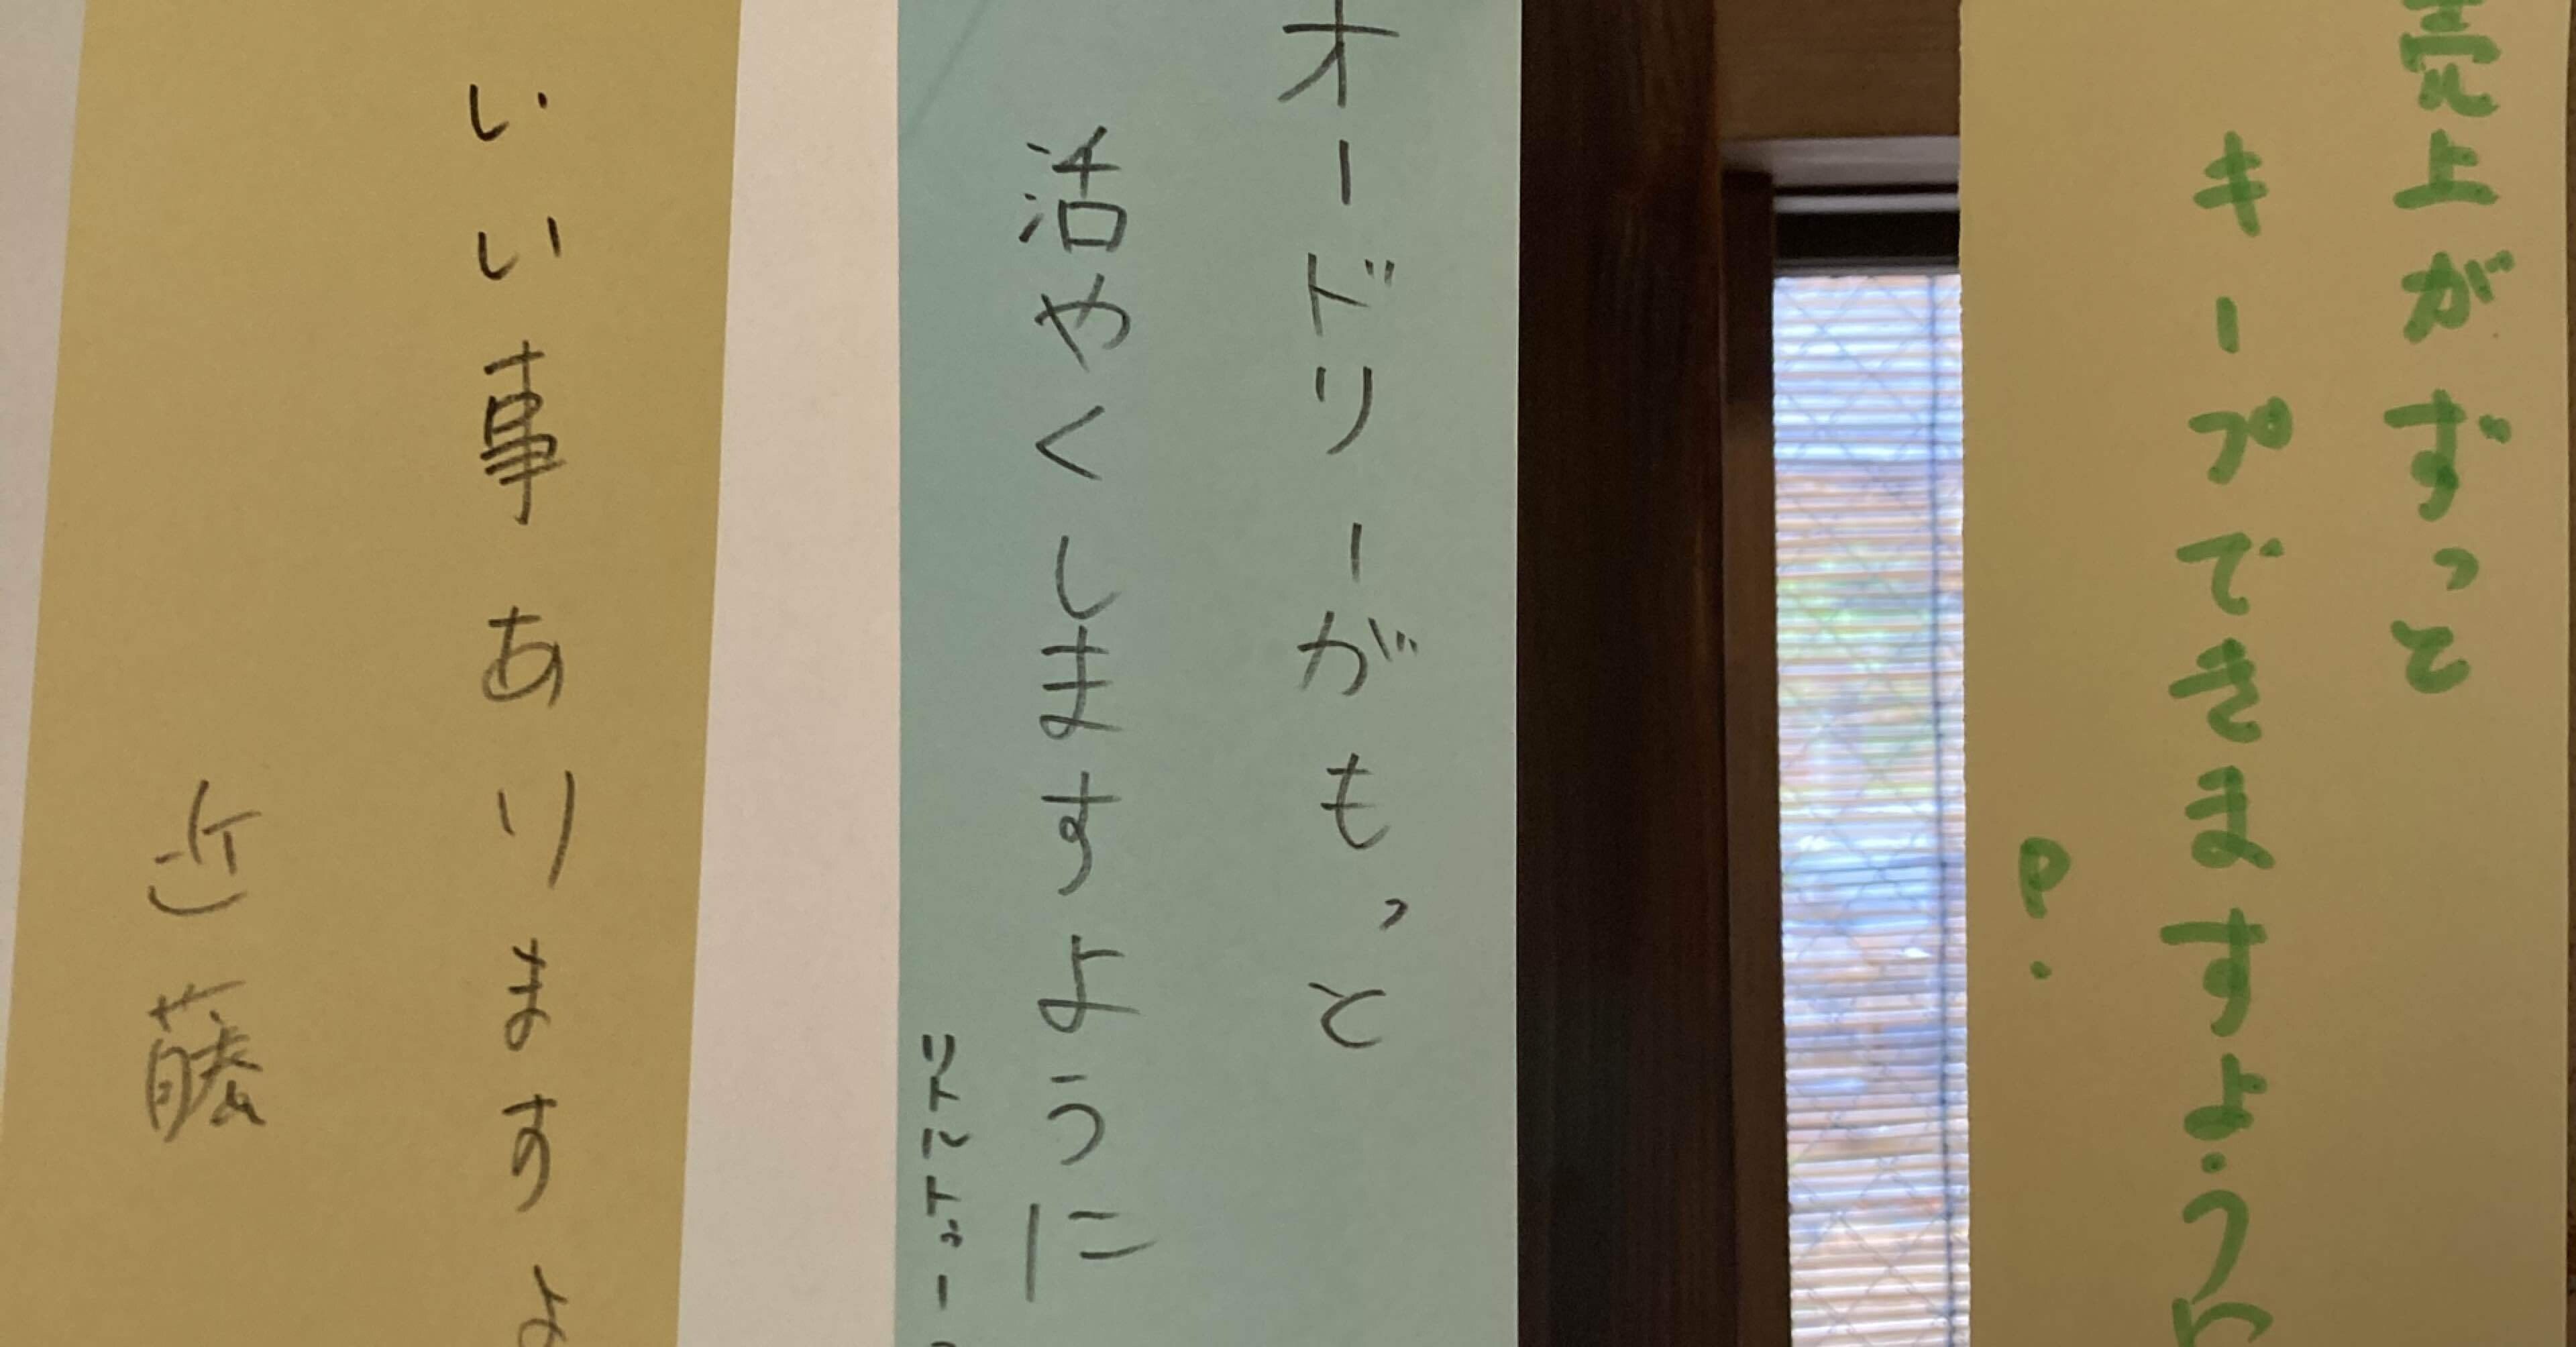 売上がずっと
キープできますように
P.
オードリーがもっと
活やくしますように
リトルトゥー
いい事ありますよ
近藤